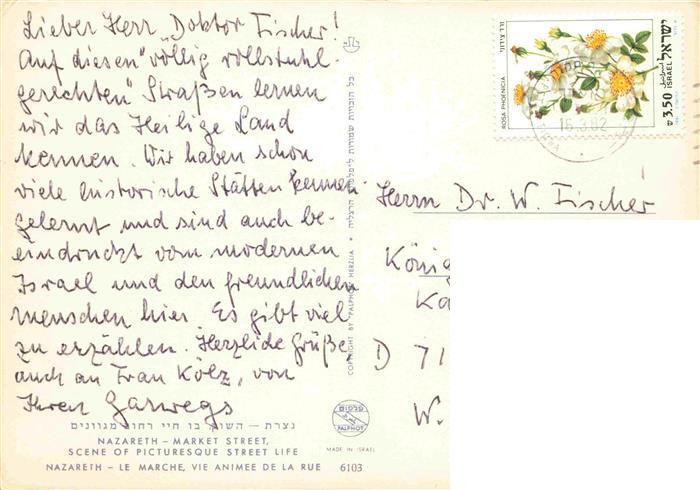 Lieber Herr Doktor Fischer!
Auf diesen "völlig rollstuhl-
gerechten" Straßen lernen
wir das Heilige Land
kennen. Wir haben schon
viele historische Stätten kennen-
gelernt und sind auch be-
eindruckt vom modernen
Israel und den freundlichen
Menschen hier. Es gibt viel
zu erzählen. Herzliche Grüße,
auch an Frau Kölz, von
Ihren Garwegs
נצרת — השוק בו חיי רחוב מגוונים
NAZARETH – MARKET STREET,
SCENE OF PICTURESQUE STREET LIFE
NAZARETH – LE MARCHE, VIE ANIMEE DE LA RUE 6103
כל הזכויות שמורות לפלפוט הרצליה
COPYRIGHT BY "PALPHOT" HERZLIA
פלפוט
PALPHOT
MADE IN ISRAEL
ROSA PHOENICIA
ישראל
اسرائيل
ISRAEL
3.50
16.3.82
Herrn Dr. W. Fischer
König
Ka
D 71
W.